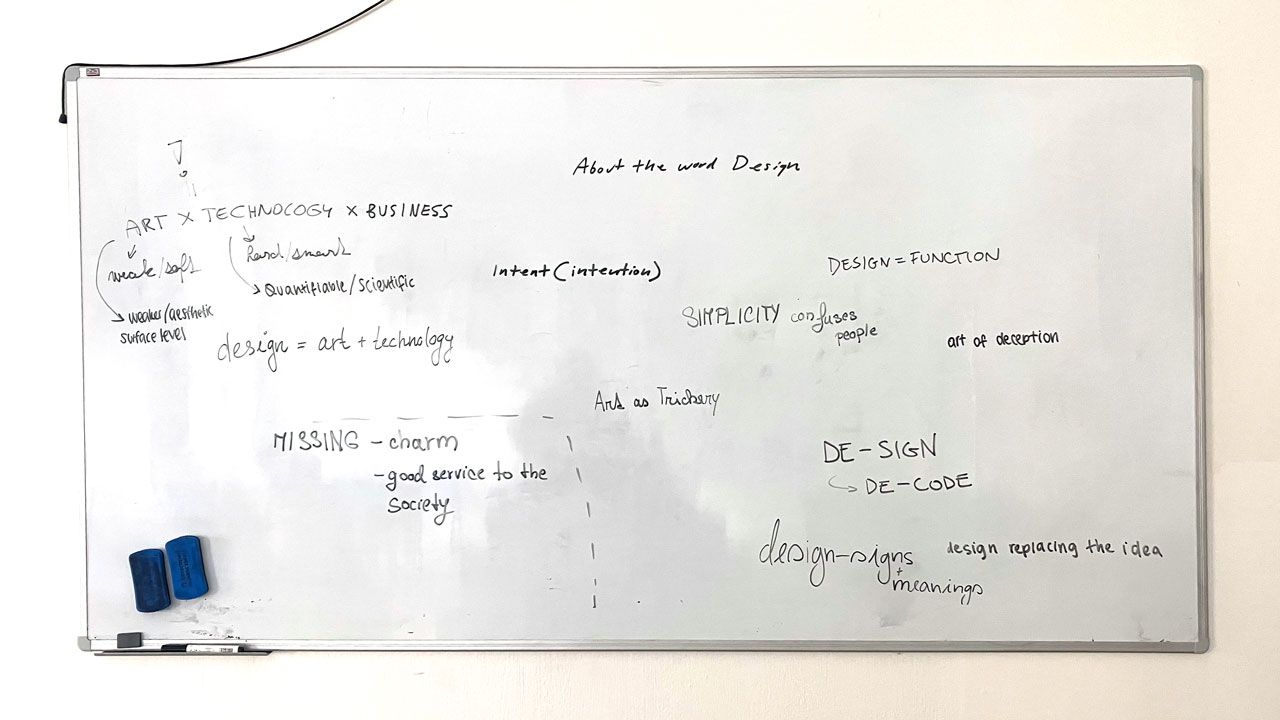 About the word Design
ART X TECHNOLOGY X BUSINESS
weak/soft
Hard/smart
Quantifiable/Scientific
weaker/aesthetic
surface level
design = art + technology
Intent (intention)
DESIGN = FUNCTION
SIMPLICITY confuses
people
art of deception
Art as Trickery
MISSING - charm
- good service to the
society
DE-SIGN
DE-CODE
design-signs
+
meanings
design replacing the idea